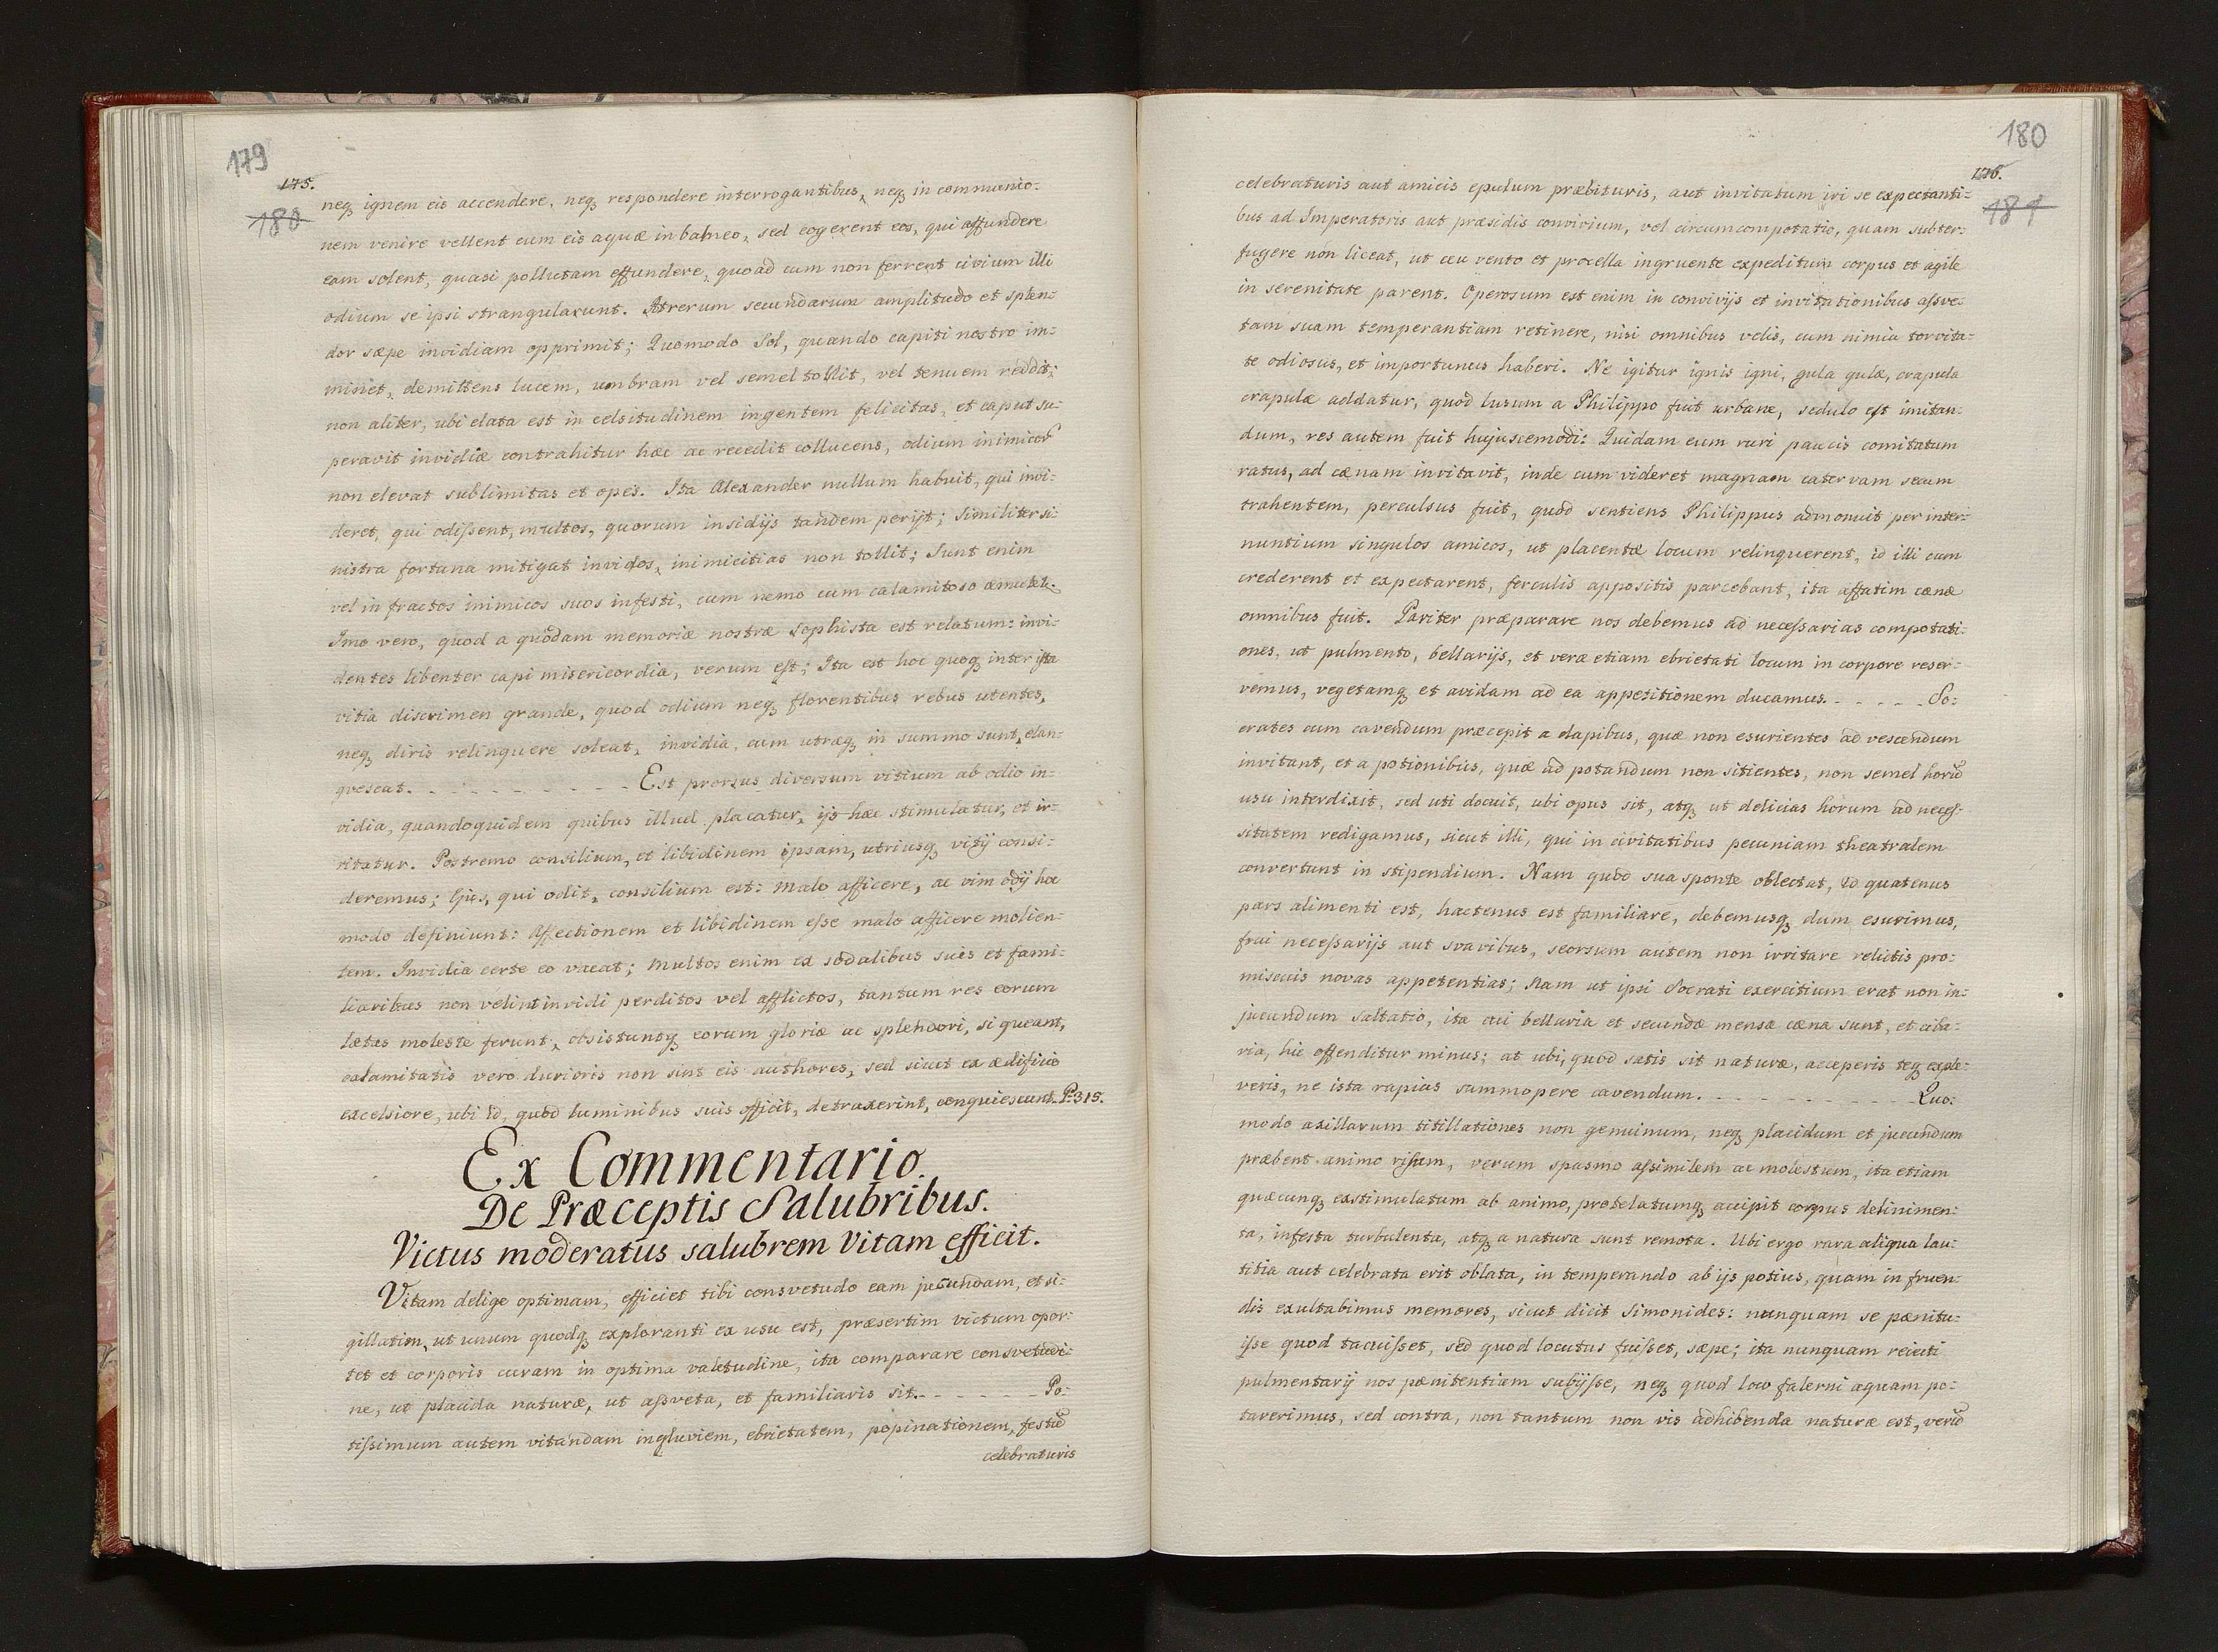 179
175.
180
neq₃ ignem eis accendere, neq₃ respondere interrogantibus, neq₃ in communio-
nem venire vellent cum eis aquæ in balneo, sed cogerent eos, qui affundere
eam solent, quasi pollutam effundere, quoad cum non ferrent civium illi
odium se ipsi strangularunt. At rerum secundarum amplitudo et splen-
dor sæpe invidiam opprimit; Quomodo Sol, quando capiti nostro im-
minet, demittens lucem, umbram vel semel tollit, vel tenuem reddit;
non aliter, ubi elata est in celsitudinem ingentem felicitas, et caput su-
peravit invidiæ contrahitur hæc ac recedit collucens, odium inimicor
non elevat sublimitas et opes. Ita Alexander nullum habuit, qui invi-
deret, qui odissent, multos, quorum insidijs tandem perijt; Similiter si-
nistra fortuna mitigat invidos, inimicitias non tollit; Sunt enim
vel in fractos inimicos suos infesti, cum nemo cum calamitoso
Imo vero, quod a quodam memoriæ nostræ Sophista est relatum: invi-
dentes libenter capi misericordia, verum est; Ita est hoc quoq₃ inter ista
vitia discrimen grande, quod odium neq₃ florentibus rebus utentes,
neq₃ diris relinquere soleat, invidia, cum utraq₃ in summo sunt, elan-
gvescat. - - - - - - - - - Est prorsus diversum vitium ab odio in-
vidia, quandoquidem quibus illud placatur, ijs hæc stimulatur, et ir-
ritatur. Postremo consilium, et libidinem ipsam, utriusq₃ vitij consi-
deremus; Ejus, qui odit, consilium est: malo afficere, ac vim odij hoc
modo definiunt: Affectionem et libidinem esse malo afficere molien-
tem. Invidia certe eo vacat; multos enim ex sodalibus suis et fami-
liaribus non velint invidi perditos vel afflictos, tantum res eorum
lætas moleste ferunt, obsistuntq₃ eorum gloriæ ac splendori, si queant,
calamitatis vero durioris non sunt eis authores, sed sicut ex ædificio
excelsiore, ubi id, quod luminibus suis officit, detraxerint, conquiescunt. P: 315.
Ex Commentario.
De Præceptis Salubribus.
Victus moderatus salubrem vitam efficit.
Vitam delige optimam, efficiet tibi consvetudo eam jucundam, et si-
gillatim, ut unum quodq₃ exploranti ex usu est, præsertim victum opor-
tet et corporis curam in optima valetudine, ita comparare consvetudi-
ne, ut placida naturæ, ut assveta, et familiaris sit. - - - - - - - Po-
tissimum autem vitandam ingluviem, ebrietatem, popinationem, festū
celebraturis
180
176.
181
celebraturis aut amicis epulum præbituris, aut invitatum iri se expectanti-
bus ad Imperatoris aut præsidis convivium, vel circumcompotatio, quam subter-
fugere non liceat, ut ceu vento et procella ingruente expeditum corpus et agile
in serenitate parent. Operosum est enim in convivijs et invitationibus assve-
tam suam temperantiam retinere, nisi omnibus velis, cum nimia torvita-
te odiosus, et importunus haberi. Ne igitur ignis igni, gula gulæ, crapula
crapulæ addatur, quod lusum a Philippo fuit urbane, sedulo est imitan-
dum, res autem fuit hujuscemodi: Quidam eum ruri paucis comitatum
ratus, ad cænam invitavit, inde cum videret magnam catervam secum
trahentem, perculsus fuit, quod sentiens Philippus admonuit per inter-
nuntium singulos amicos, ut placentæ locum relinquerent, id illi cum
crederent et expectarent, ferculis appositis parcebant, ita affatim cænæ
omnibus fuit. Pariter præparare nos debemus ad necessarias compotati-
ones, ut pulmento, bellarijs, et veræ etiam ebrietati locum in corpore reser-
vemus, vegetamq₃ et avidam ad ea appetitionem ducamus. - - - - - So-
crates cum cavendum præcepit a dapibus, quæ non esurientes ad vescendum
invitant, et a potionibus, quæ ad potandum non sitientes, non semel horū
usu interdixit, sed uti docuit, ubi opus sit, atq₃ ut delicias horum ad neces-
sitatem redigamus, sicut illi, qui in civitatibus pecuniam theatralem
convertunt in stipendium. Nam quod sua sponte oblectat, id quatenus
pars alimenti est, hactenus est familiare, debemusq₃ dum esurimus,
frui necessarijs aut svavibus, seorsum autem non irritare relictis pro-
miscuis novas appetentias; Nam ut ipsi Socrati exercitium erat non in-
jucundum saltatio, ita cui bellaria et secundæ mensæ cæna sunt, et ciba-
ria, hic offenditur minus; at ubi, quod satis sit naturæ, acceperis teq₃ exple-
veris, ne ista rapias summopere cavendum. - - - - - - - - - - - Quo-
modo axillarum titillationes non genuinum, neq₃ placidum et jucundum
præbent animo risum, verum spasmo assimilem ac molestum, ita etiam
quæcunq₃ exstimulatum ab animo, protelatumq₃ accipit corpus delinimen-
ta, infesta turbulenta, atq₃ a natura sunt remota. Ubi ergo rara aliqua lau-
titia aut celebrata erit oblata, in temperando ab ijs potius, quam in fruen-
dis exultabimus memores, sicut dicit Simonides: nunquam se pænitu-
isse quod tacuisset, sed quod locutus fuisset, sæpe; ita nunquam reiecti
pulmentarij nos pænitentiam subijsse, neq₃ quod loco falerni aquam po-
taverimus, sed contra, non tantum non vis adhibenda naturæ est, verū